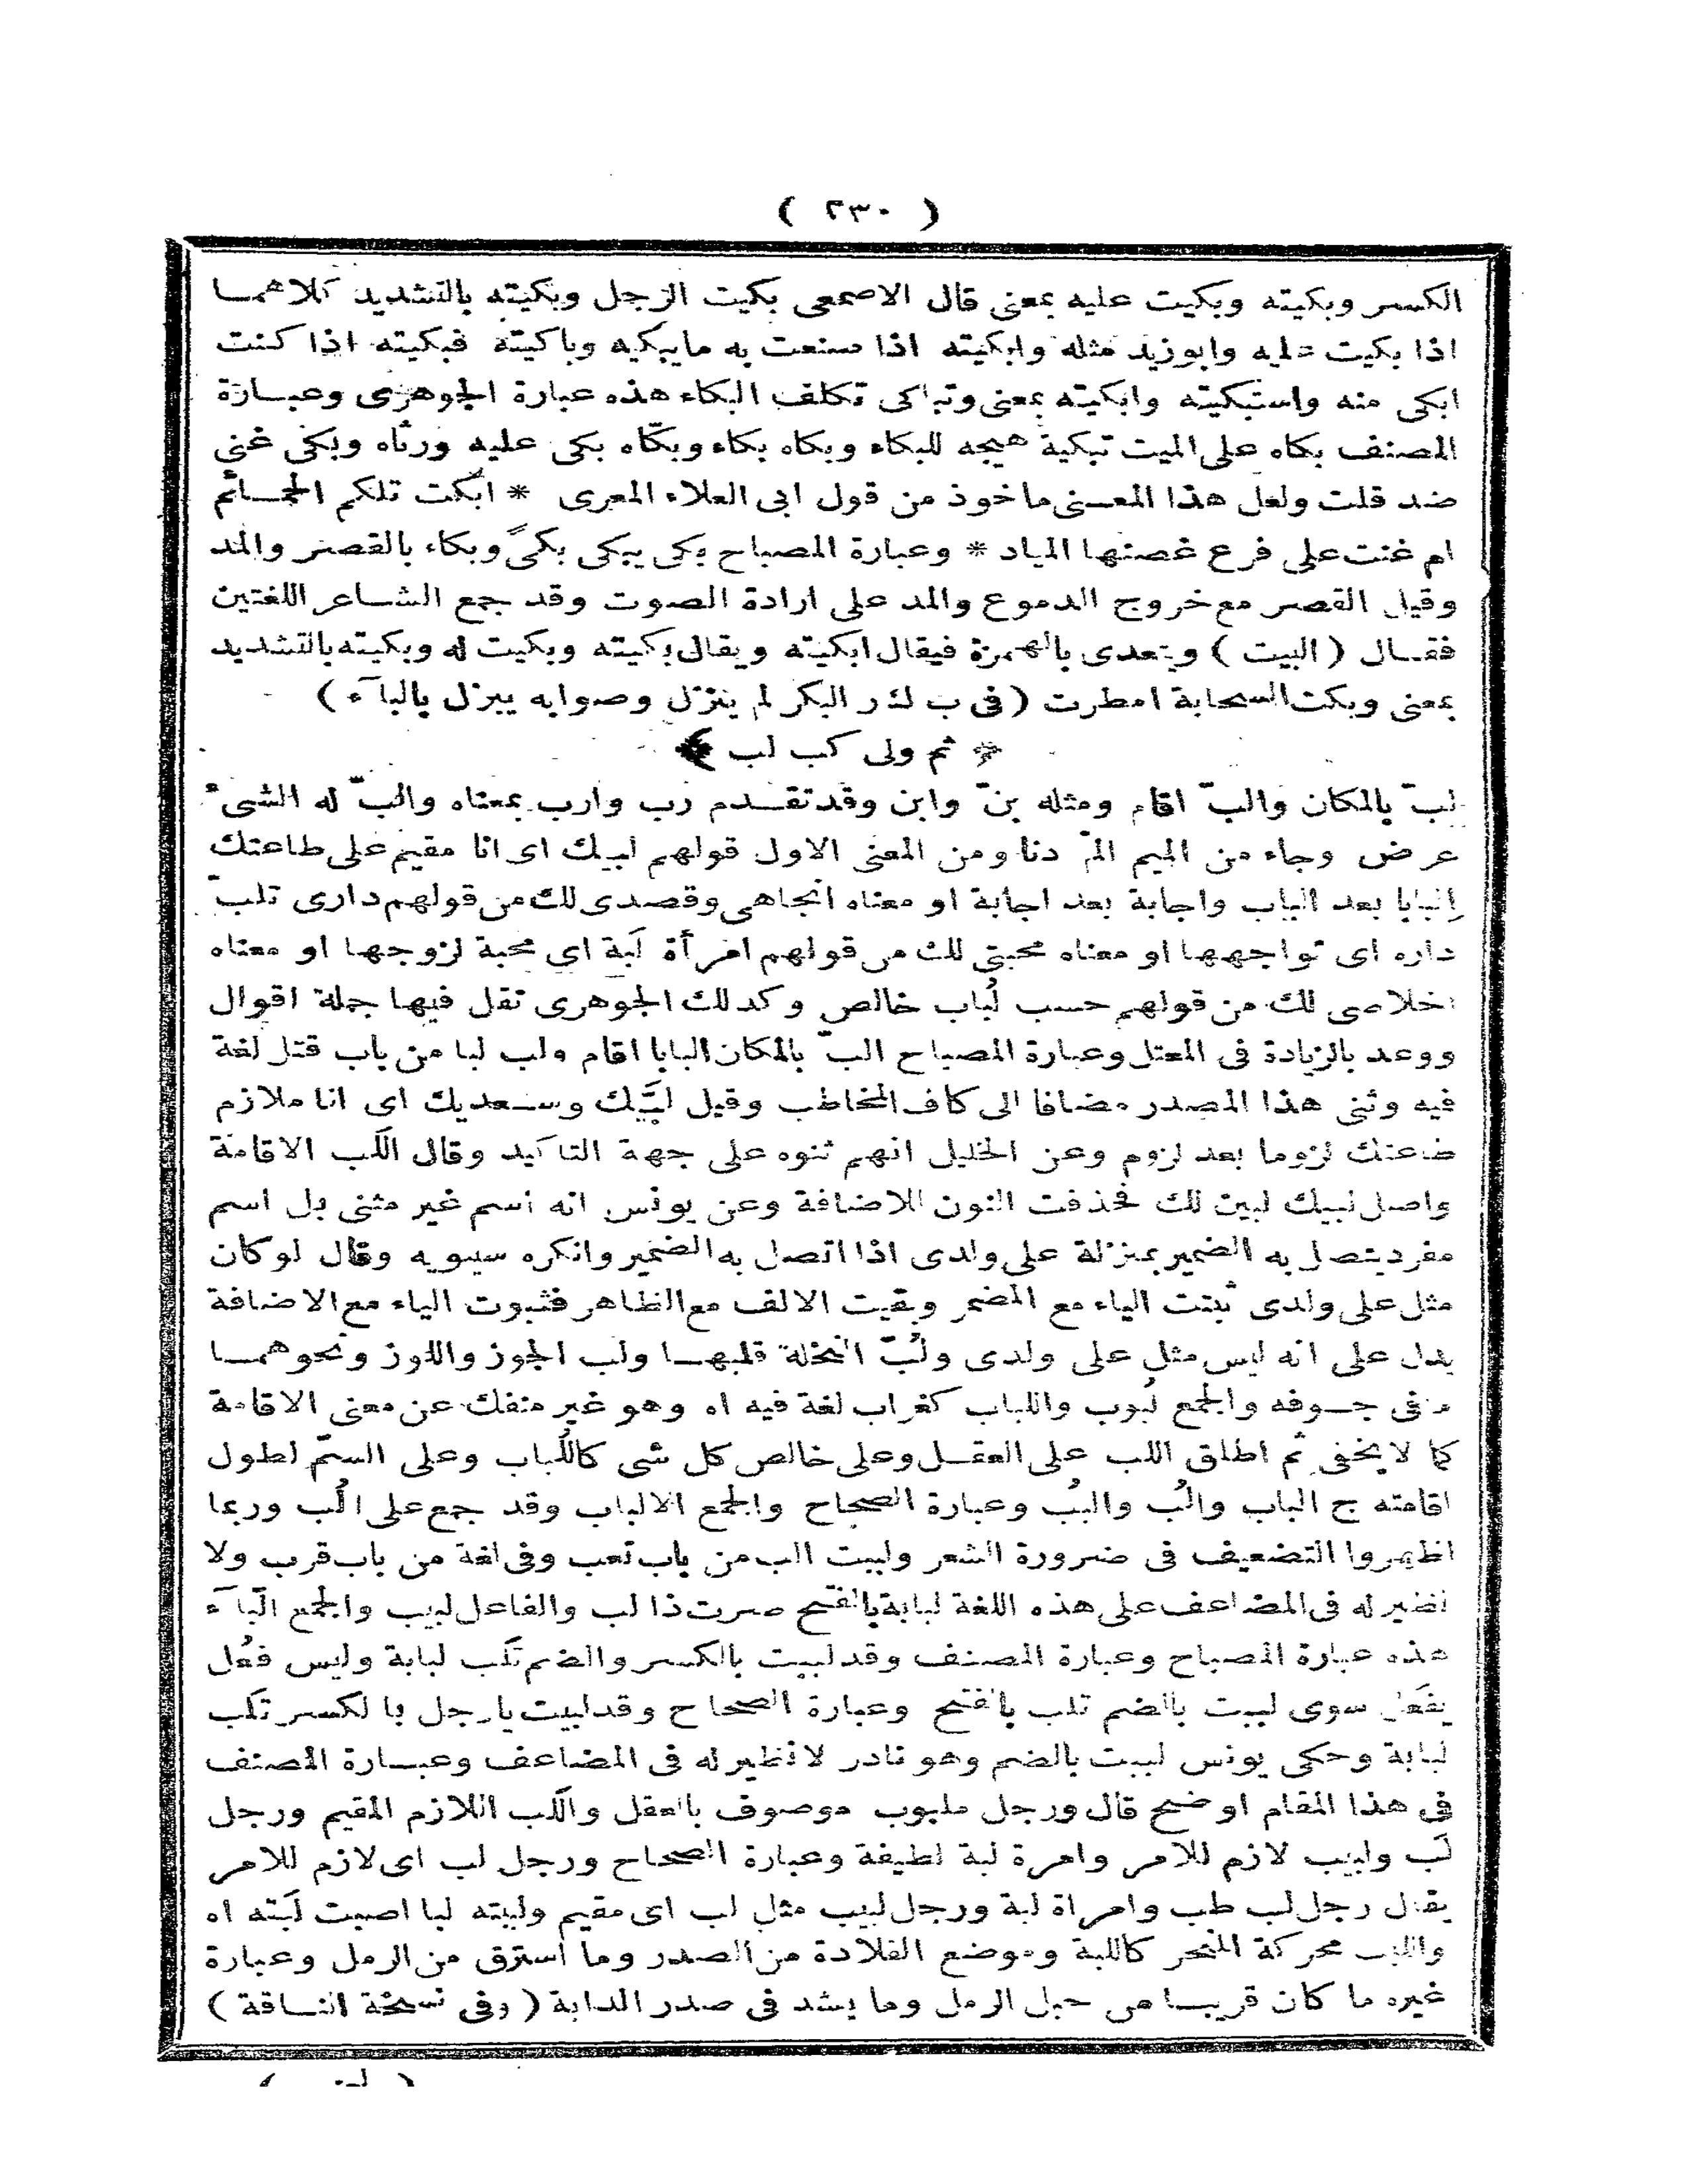 ( ٢٣٠ )
الكسر وبكيته وبكيت عليه بمعنى قال الاصمعى بكيت الرجل وبكيته بالتشديد كلاهمـا
اذا بكيت عليه وابوزيد مثله وابكيته اذا صنعت به مايبكيه وباكيته فبكيته اذا كنت
ابكى منه واستبكيته وابكيته بمعنى وتباكى تكلف البكاء هذه عبارة الجوهرى وعبـارة
المصنف بكاه على الميت تبكية هيجه للبكاء وبكاه بكاء وبكّاه بكى عليه ورثاه وبكى غنى
ضد قلت ولعل هذا المعـنى ماخوذ من قول ابى العلاء المعرى * ابكت تلكم الحمـائم
ام غنت على فرع غصنها المياد * وعبارة المصباح بكى يبكى بكىً وبكاء بالقصر والمد
وقيل القصر مع خروج الدموع والمد على ارادة الصوت وقد جمع الشـاعر اللغتين
فقـال ( البيت ) ويتعدى بالهمزة فيقال ابكيته ويقال بكيته وبكيت له وبكيته بالتشديد
بمعنى وبكت السحابة امطرت ( فى ب ك ر البكر لم ينزل وصوابه يبزل بالبآء )
﴿ ثم ولى كب لب ﴾
لبّ بالمكان والبّ اقام ومثله بنّ وابن وقد تقـدم رب وارب بمعناه والبّ له الشىء
عرض وجاء من الميم المّ دنا ومن المعنى الاول قولهم لبيك اى انا مقيم على طاعتك
إلبابا بعد الباب واجابة بعد اجابة او معناه اتجاهى وقصدى لك من قولهم دارى تلبّ
داره اى تواجهها او معناه محبتى لك من قولهم امرأة لَبة اى محبة لزوجها او معناه
اخلاصى لك من قولهم حسب لُباب خالص وكذلك الجوهرى نقل فيها جملة اقوال
ووعد بالزيادة فى المعتل وعبارة المصباح البّ بالمكان البابا اقام ولب لبا من باب قتل لغة
فيه وثنى هذا المصدر مضافا الى كاف المخاطب وقيل لبَّيك وسـعديك اى انا ملازم
طاعتك لزوما بعد لزوم وعن الخليل انهم ثنوه على جهة التاكيد وقال اللَب الاقامة
واصل لبيك لبين لك فحذفت النون للاضافة وعن يونس انه اسم غير مثنى بل اسم
مفرد يتصل به الضمير بمنزلة على ولدى اذا اتصل به الضمير وانكره سيبويه وقال لوكان
مثل على ولدى ثبتت الياء مع المضمر وبقيت الالف مع الظاهر فثبوت الياء مع الاضافة
يدل على انه ليس مثل على ولدى ولُبّ النخلة قلبهـا ولب الجوز واللوز ونحوهمـا
مافى جـوفه والجمع لُبوب واللباب كغراب لغة فيه اه وهو غير منفك عن معنى الاقامة
كما لا يخفى ثم اطلق اللب على العقـل وعلى خالص كل شى كاللُباب وعلى السمّ لطول
اقامته ج الباب والُب والبُب وعبارة الصحاح والجمع الالباب وقد جمع على الُب وربما
اظهروا التضعيف فى ضرورة الشعر ولببت الب من باب تعب وفى لغة من باب قرب ولا
نظير له فى المضاعف على هذه اللغة لبابة بالفتح صرت ذا لب والفاعل لبيب والجمع البّآء
هذه عبارة المصباح وعبارة المصنف وقد لببت بالكسر والضم تلَب لبابة وليس فعُل
يفعَل سوى لببت بالضم تلب بالفتح وعبارة الصحاح وقد لببت يا رجل با لكسر تلَب
لبابة وحكى يونس لببت بالضم وهو نادر لا نظير له فى المضاعف وعبـارة المصنف
فى هذا المقام اوضح قال ورجل ملبوب موصوف بالعقل واللَب اللازم المقيم ورجل
لَب ولبيب لازم للامر وامرة لبة لطيفة وعبارة الصحاح ورجل لب اى لازم للامر
يقال رجل لب طب وامراة لبة ورجل لبيب مثل لب اى مقيم ولببته لبا اصبت لَبته اه
واللبب محركة المنحر كاللبة وموضع القلادة من الصدر وما استرق من الرمل وعبارة
غيره ما كان قريبـا من حبل الرمل وما يشد فى صدر الدابة ( وفى نسخة النـاقة )